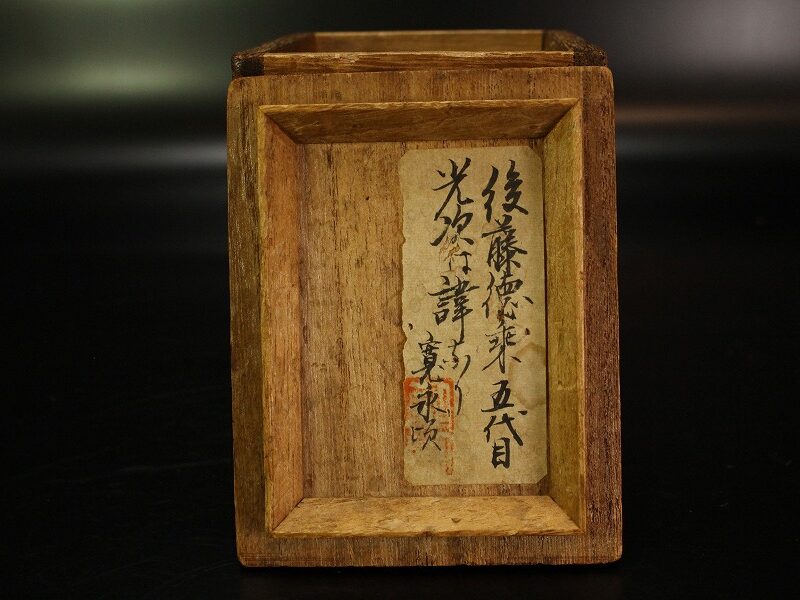 後藤徳乗五代目
光次は諱なり
寛永頃